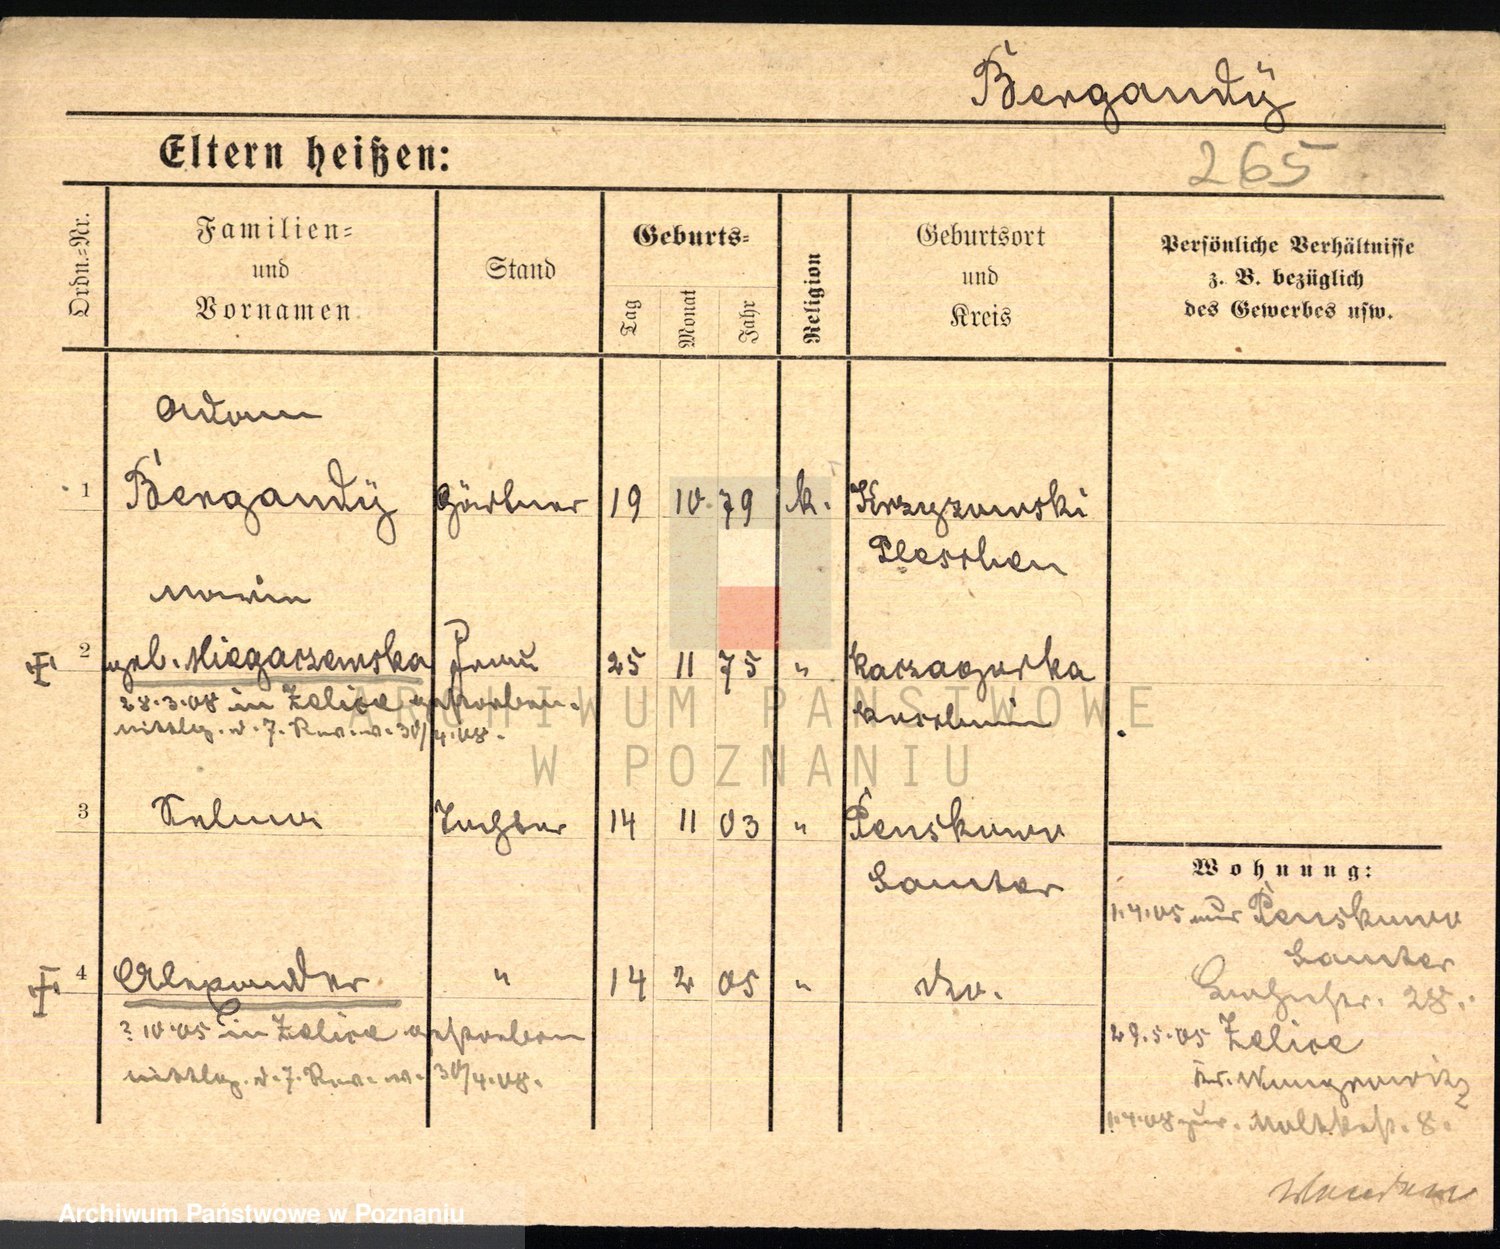 Bergandÿ
Eltern heißen:
265
Ordn.-Nr.
Familien-
und
Vornamen
Stand
Geburts-
Tag
Monat
Jahr
Religion
Geburtsort
und
Kreis
Persönliche Verhältnisse
z. B. bezüglich
des Gewerbes usw.
Adam
1 Bergandÿ Gärtner 19 10. 79 k. Krzyzowski
Pleschen
Maria
2 geb. Frau 25 11 75 "
Koschmin
28.3.08 in Zelice gestorben.
Mittlg. d. 7. Rev. v. 30/4.08.
3 Tochter 14 11 03 " Penskowo
Samter
4 Alexander " 14 2 05 " do.
? 10.05 in Zelice gestorben
Mittlg. d. 7. Rev. v. 30/4.08.
Wohnung:
1.4.05 aus Penskowo
Samter
28.
29.5.05 Zelice
Kr. Wongrowitz
1.4.08 zur. Moltkestr. 8.
Wenden
ARCHIWUM PAŃSTWOWE
W POZNANIU
Archiwum Państwowe w Poznaniu